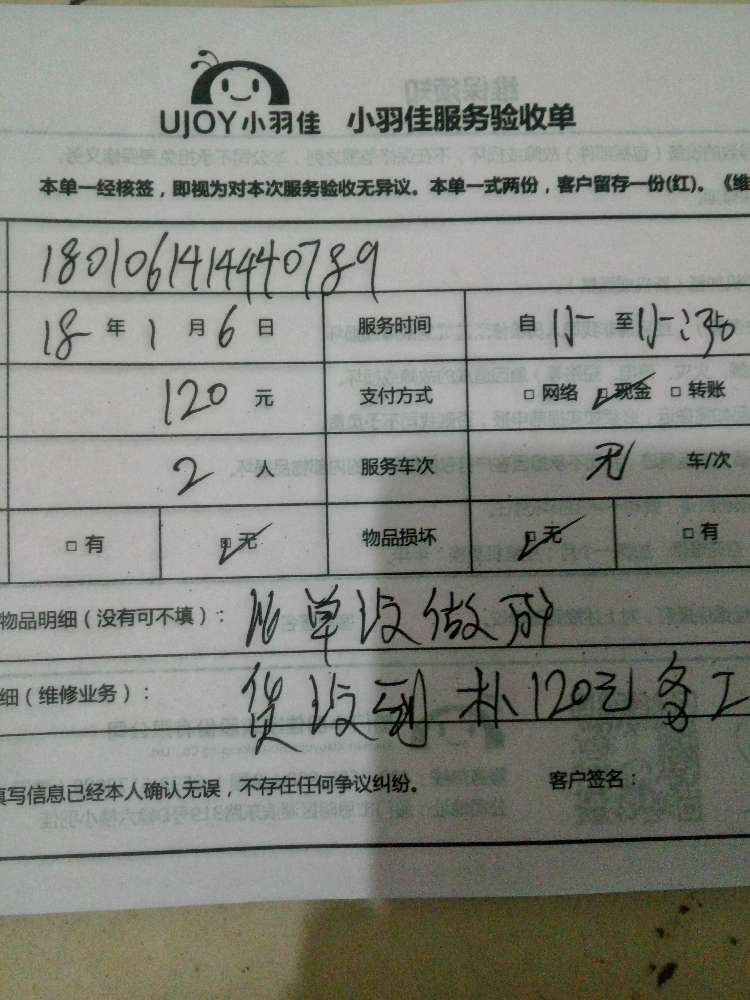 UJOY小羽佳 小羽佳服务验收单
本单一经核签，即视为对本次服务验收无异议。本单一式两份，客户留存一份(红)。《维
1801061414440789
18 年 1 月 6 日 服务时间 自 15 至 15:30
120 元 支付方式 □ 网络 □ 现金 □ 转账
2 人 服务车次 无 车/次
□ 有 □ 无 物品损坏 □ 无 □ 有
物品明细（没有可不填）： 单没做成
细（维修业务）： 货没到 补120元
真写信息已经本人确认无误，不存在任何争议纠纷。 客户签名：